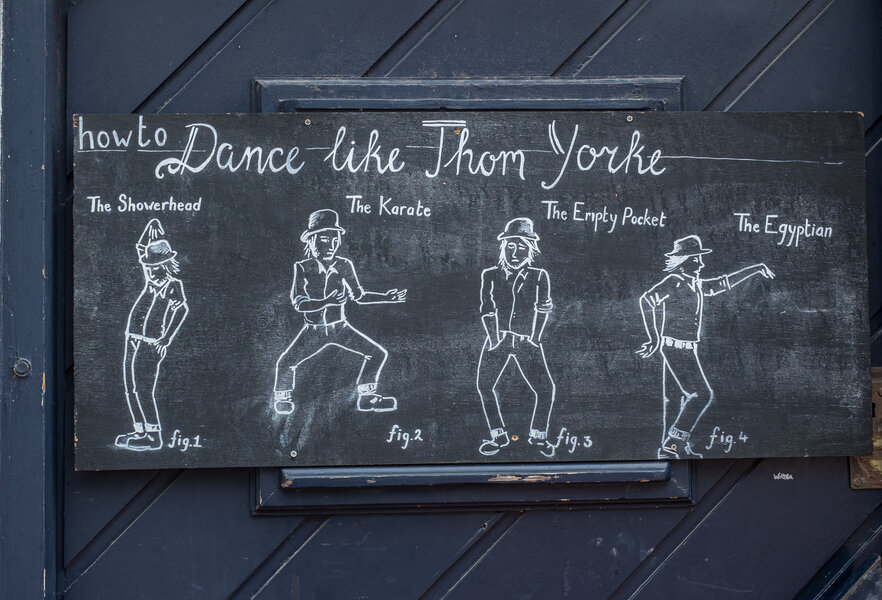 how to Dance like Thom Yorke
The Showerhead
The Karate
The Empty Pocket
The Egyptian
fig.1
fig.2
fig.3
fig.4